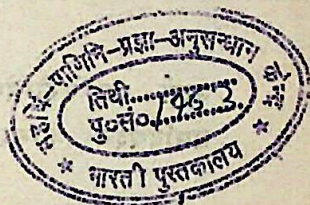 महर्षि-पाणिनि-प्रज्ञा-अनुसन्धान
तिथी..............
पु०सं०1463
* भारती पुस्तकालय *